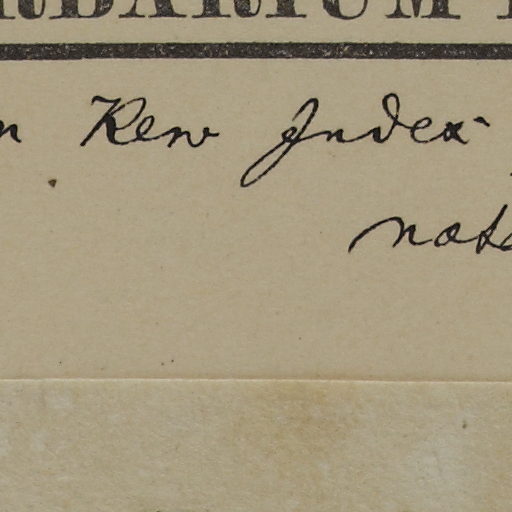 RBARIUM
n Kew Index
note